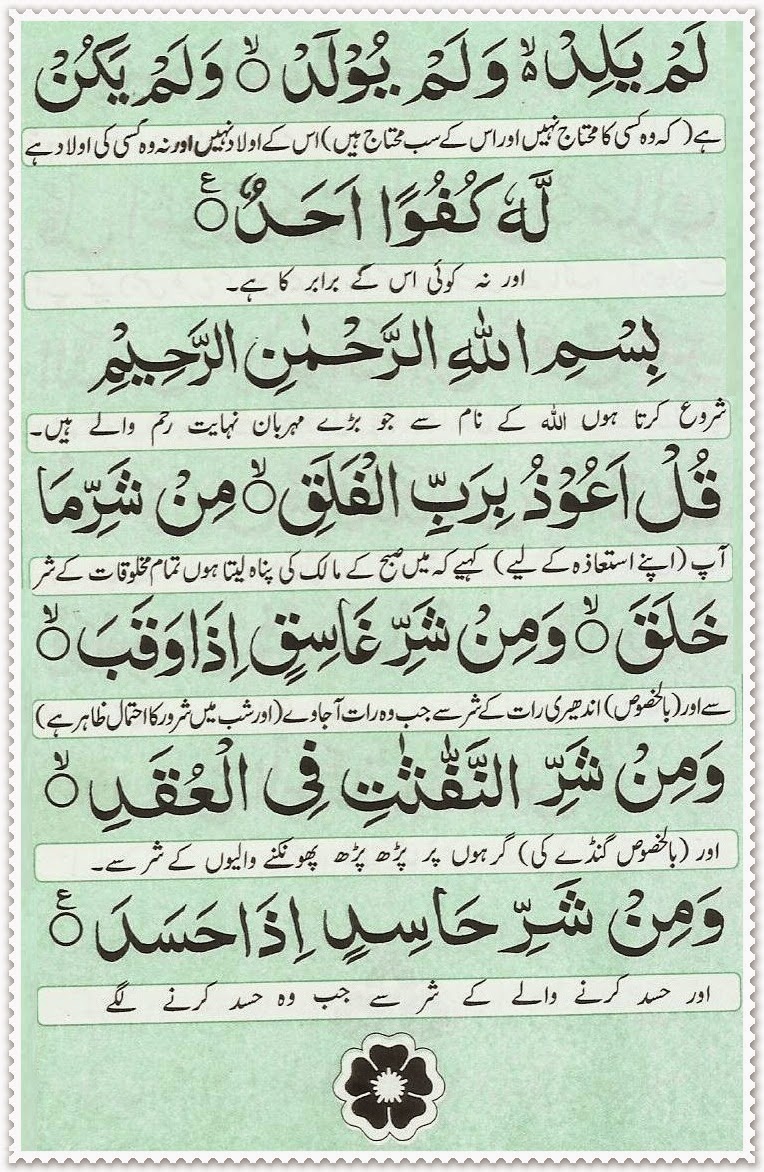 لَمْ يَلِدْ ۙ۬ وَلَمْ يُوْلَدْ ۙ○ وَلَمْ يَكُنْ
ہے ( کہ وہ کسی کا محتاج نہیں اور اس کے سب محتاج ہیں) اس کے اولاد نہیں اور نہ وہ کسی کی اولاد ہے
لَّهٗ كُفُوًا اَحَدٌ ○ع
اور نہ کوئی اس کے برابر کا ہے۔
بِسْمِ اللّٰهِ الرَّحْمٰنِ الرَّحِيْمِ
شروع کرتا ہوں اللہ کے نام سے جو بڑے مہربان نہایت رحم والے ہیں۔
قُلْ اَعُوْذُ بِرَبِّ الْفَلَقِ ۙ○ مِنْ شَرِّ مَا
آپ (اپنے استعاذہ کے لیے) کہیے کہ میں صبح کے مالک کی پناہ لیتا ہوں تمام مخلوقات کے شر
خَلَقَ ۙ○ وَمِنْ شَرِّ غَاسِقٍ اِذَا وَقَبَ ۙ○
سے اور (بالخصوص) اندھیری رات کے شر سے جب وہ رات آجاوے (اور شب میں شرور کا احتمال ظاہر ہے)
وَمِنْ شَرِّ النَّفّٰثٰتِ فِى الْعُقَدِ ۙ○
اور (بالخصوص گنڈے کی) گرہوں پر پڑھ پڑھ پھونکنے والیوں کے شر سے۔
وَمِنْ شَرِّ حَاسِدٍ اِذَا حَسَدَ ○ع
اور حسد کرنے والے کے شر سے جب وہ حسد کرنے لگے